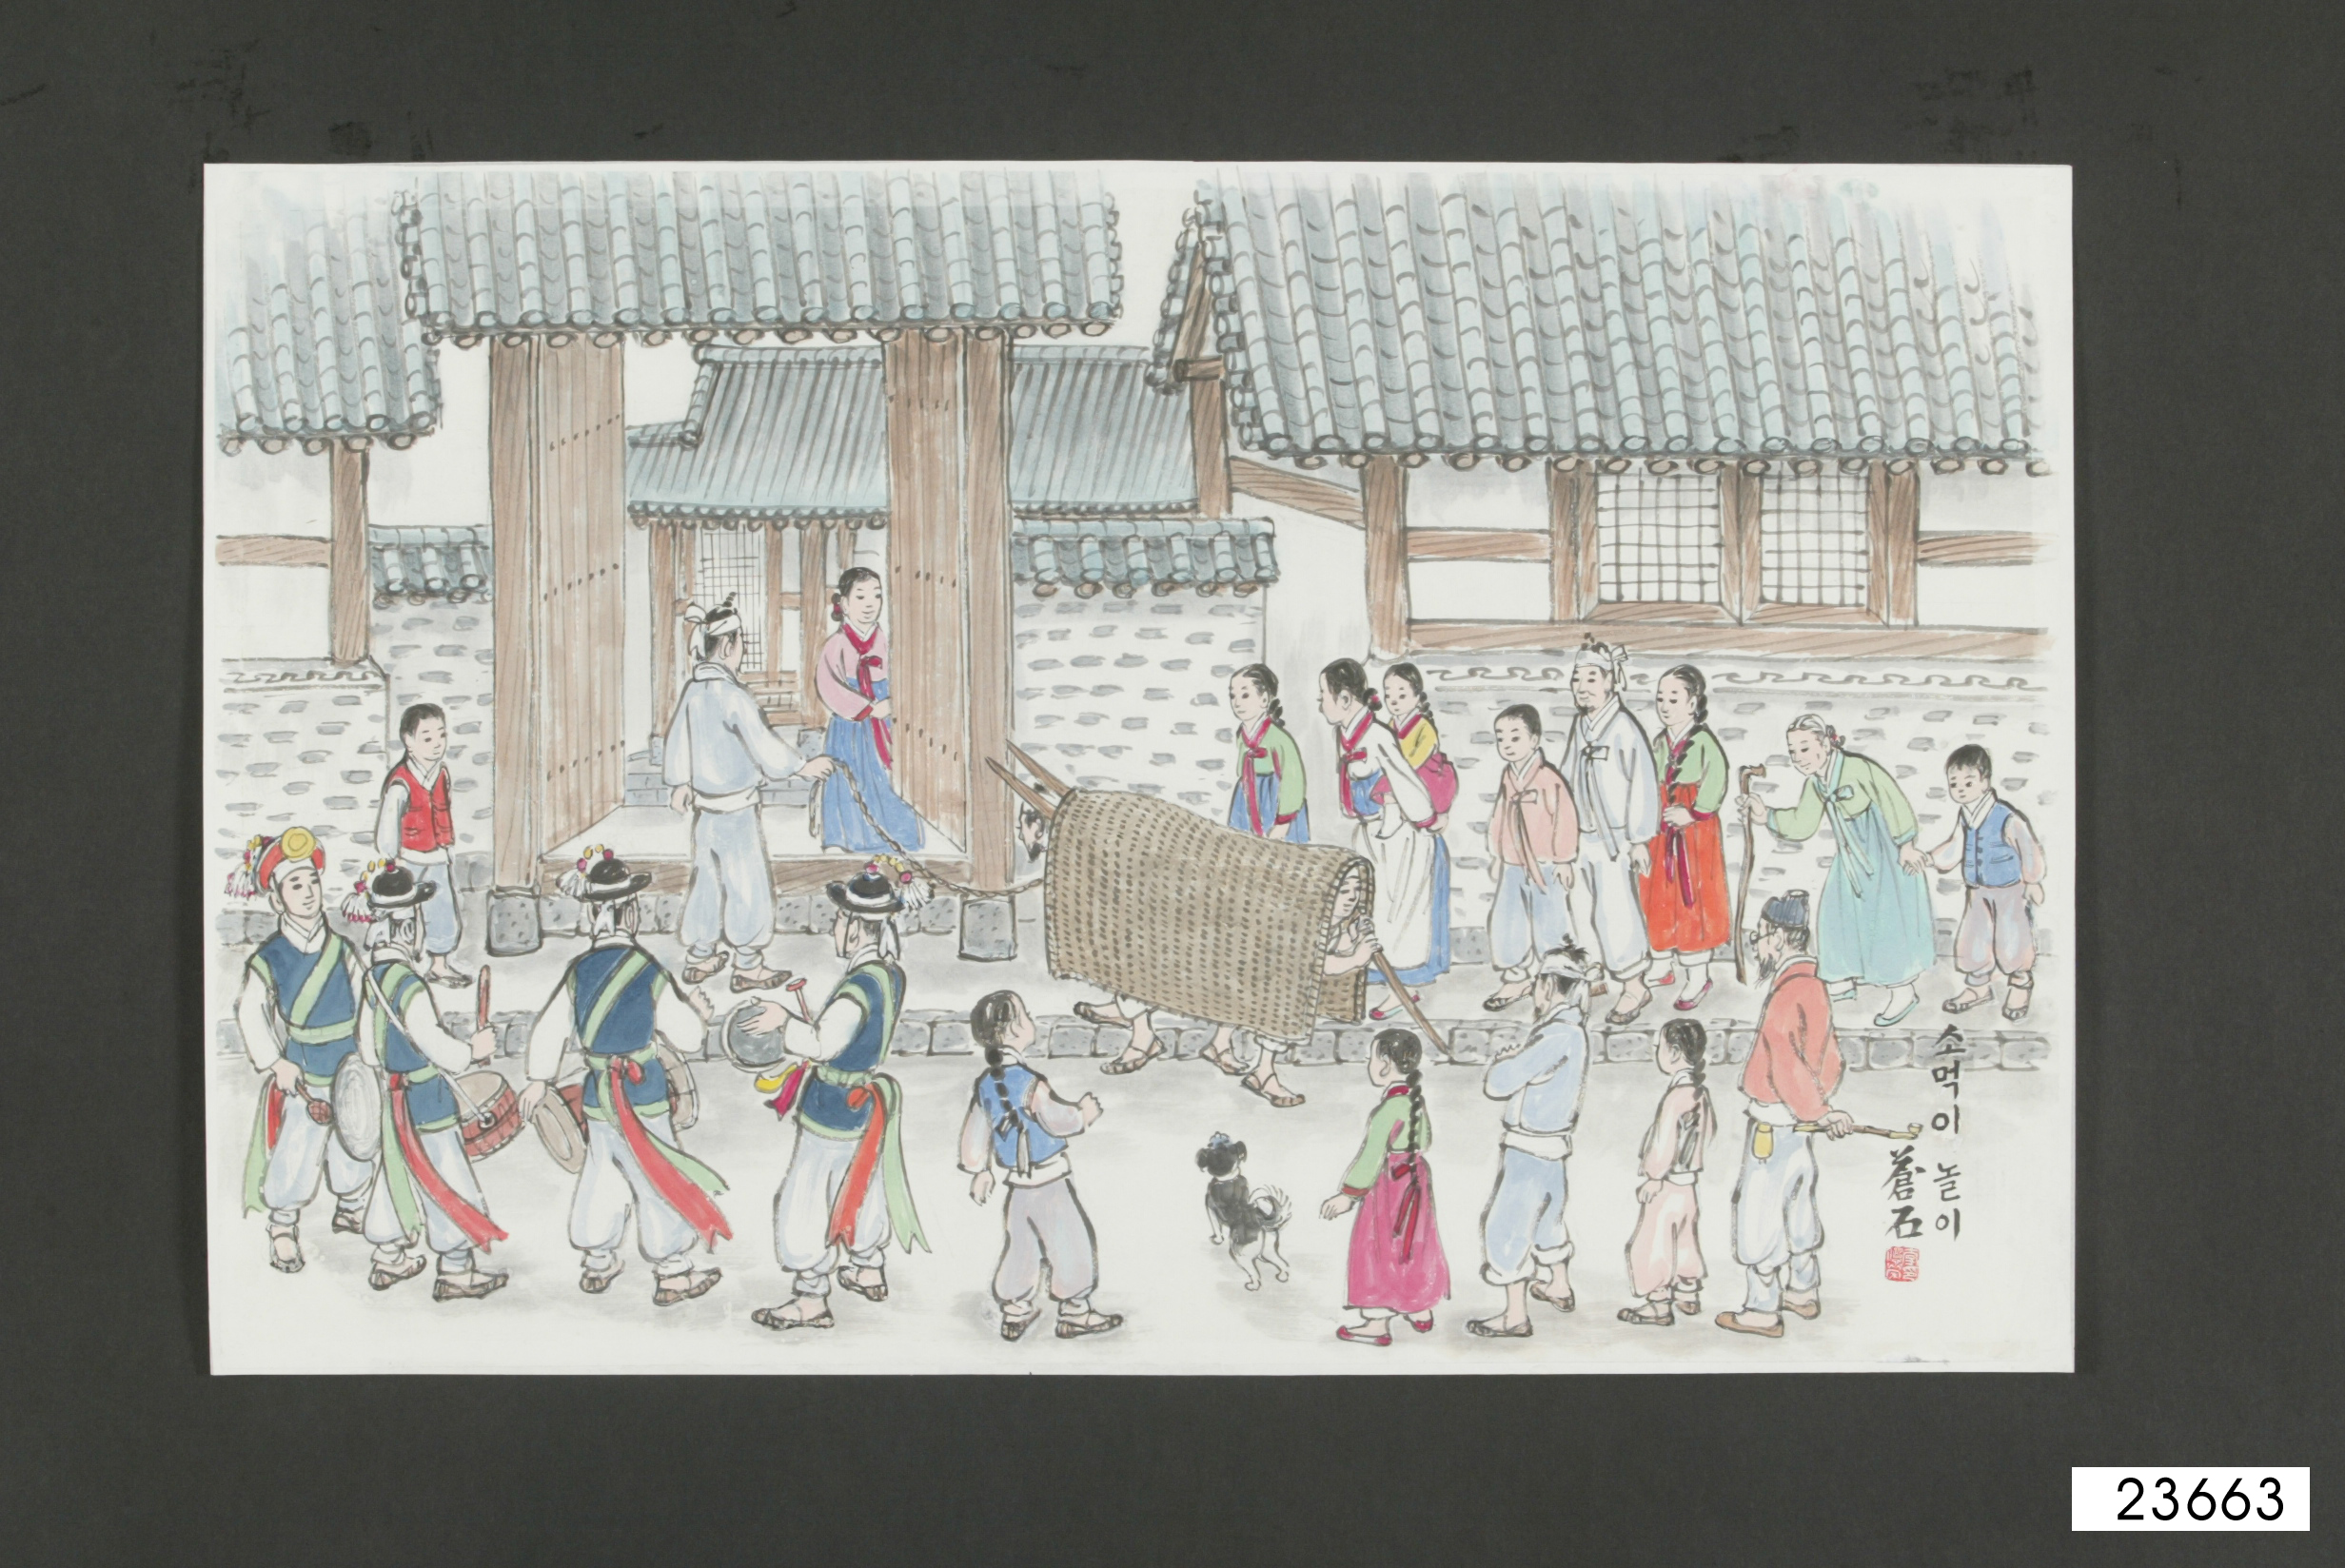 소먹이 놀이
蒼石
23663